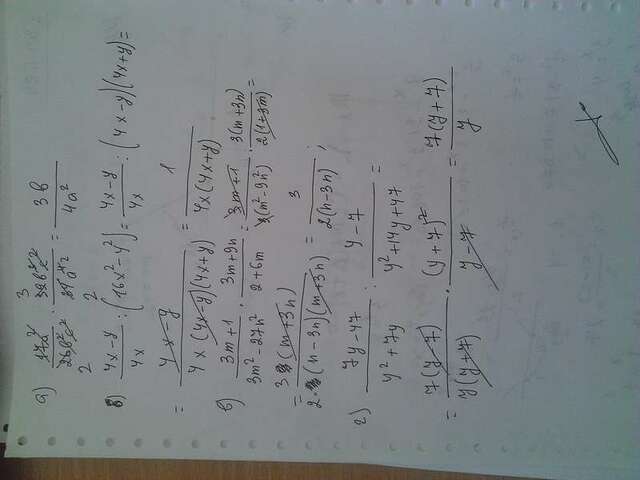 а) = 3b/4a²
б) (4x-y)/4x : (16x²-y²) = (4x-y)/4x : (4x-y)(4x+y) =
= (4x-y)/(4x(4x-y)(4x+y)) = 1/(4x(4x+y))
в) (3m+1)/(3m²-27n²) · (3m+9n)/(2+6m) = (3m+1)/(3(m²-9n²)) · 3(m+3n)/(2(1+3m)) =
= 3(m+3n)/(2·(n-3n)(m+3n)) = 3/(2(n-3n));
г) (7y-47)/(y²+7y) : (y-7)/(y²+14y+47) =
= 7(y-7)/(y(y+7)) · (y+7)²/(y-7) = 7(y+7)/y